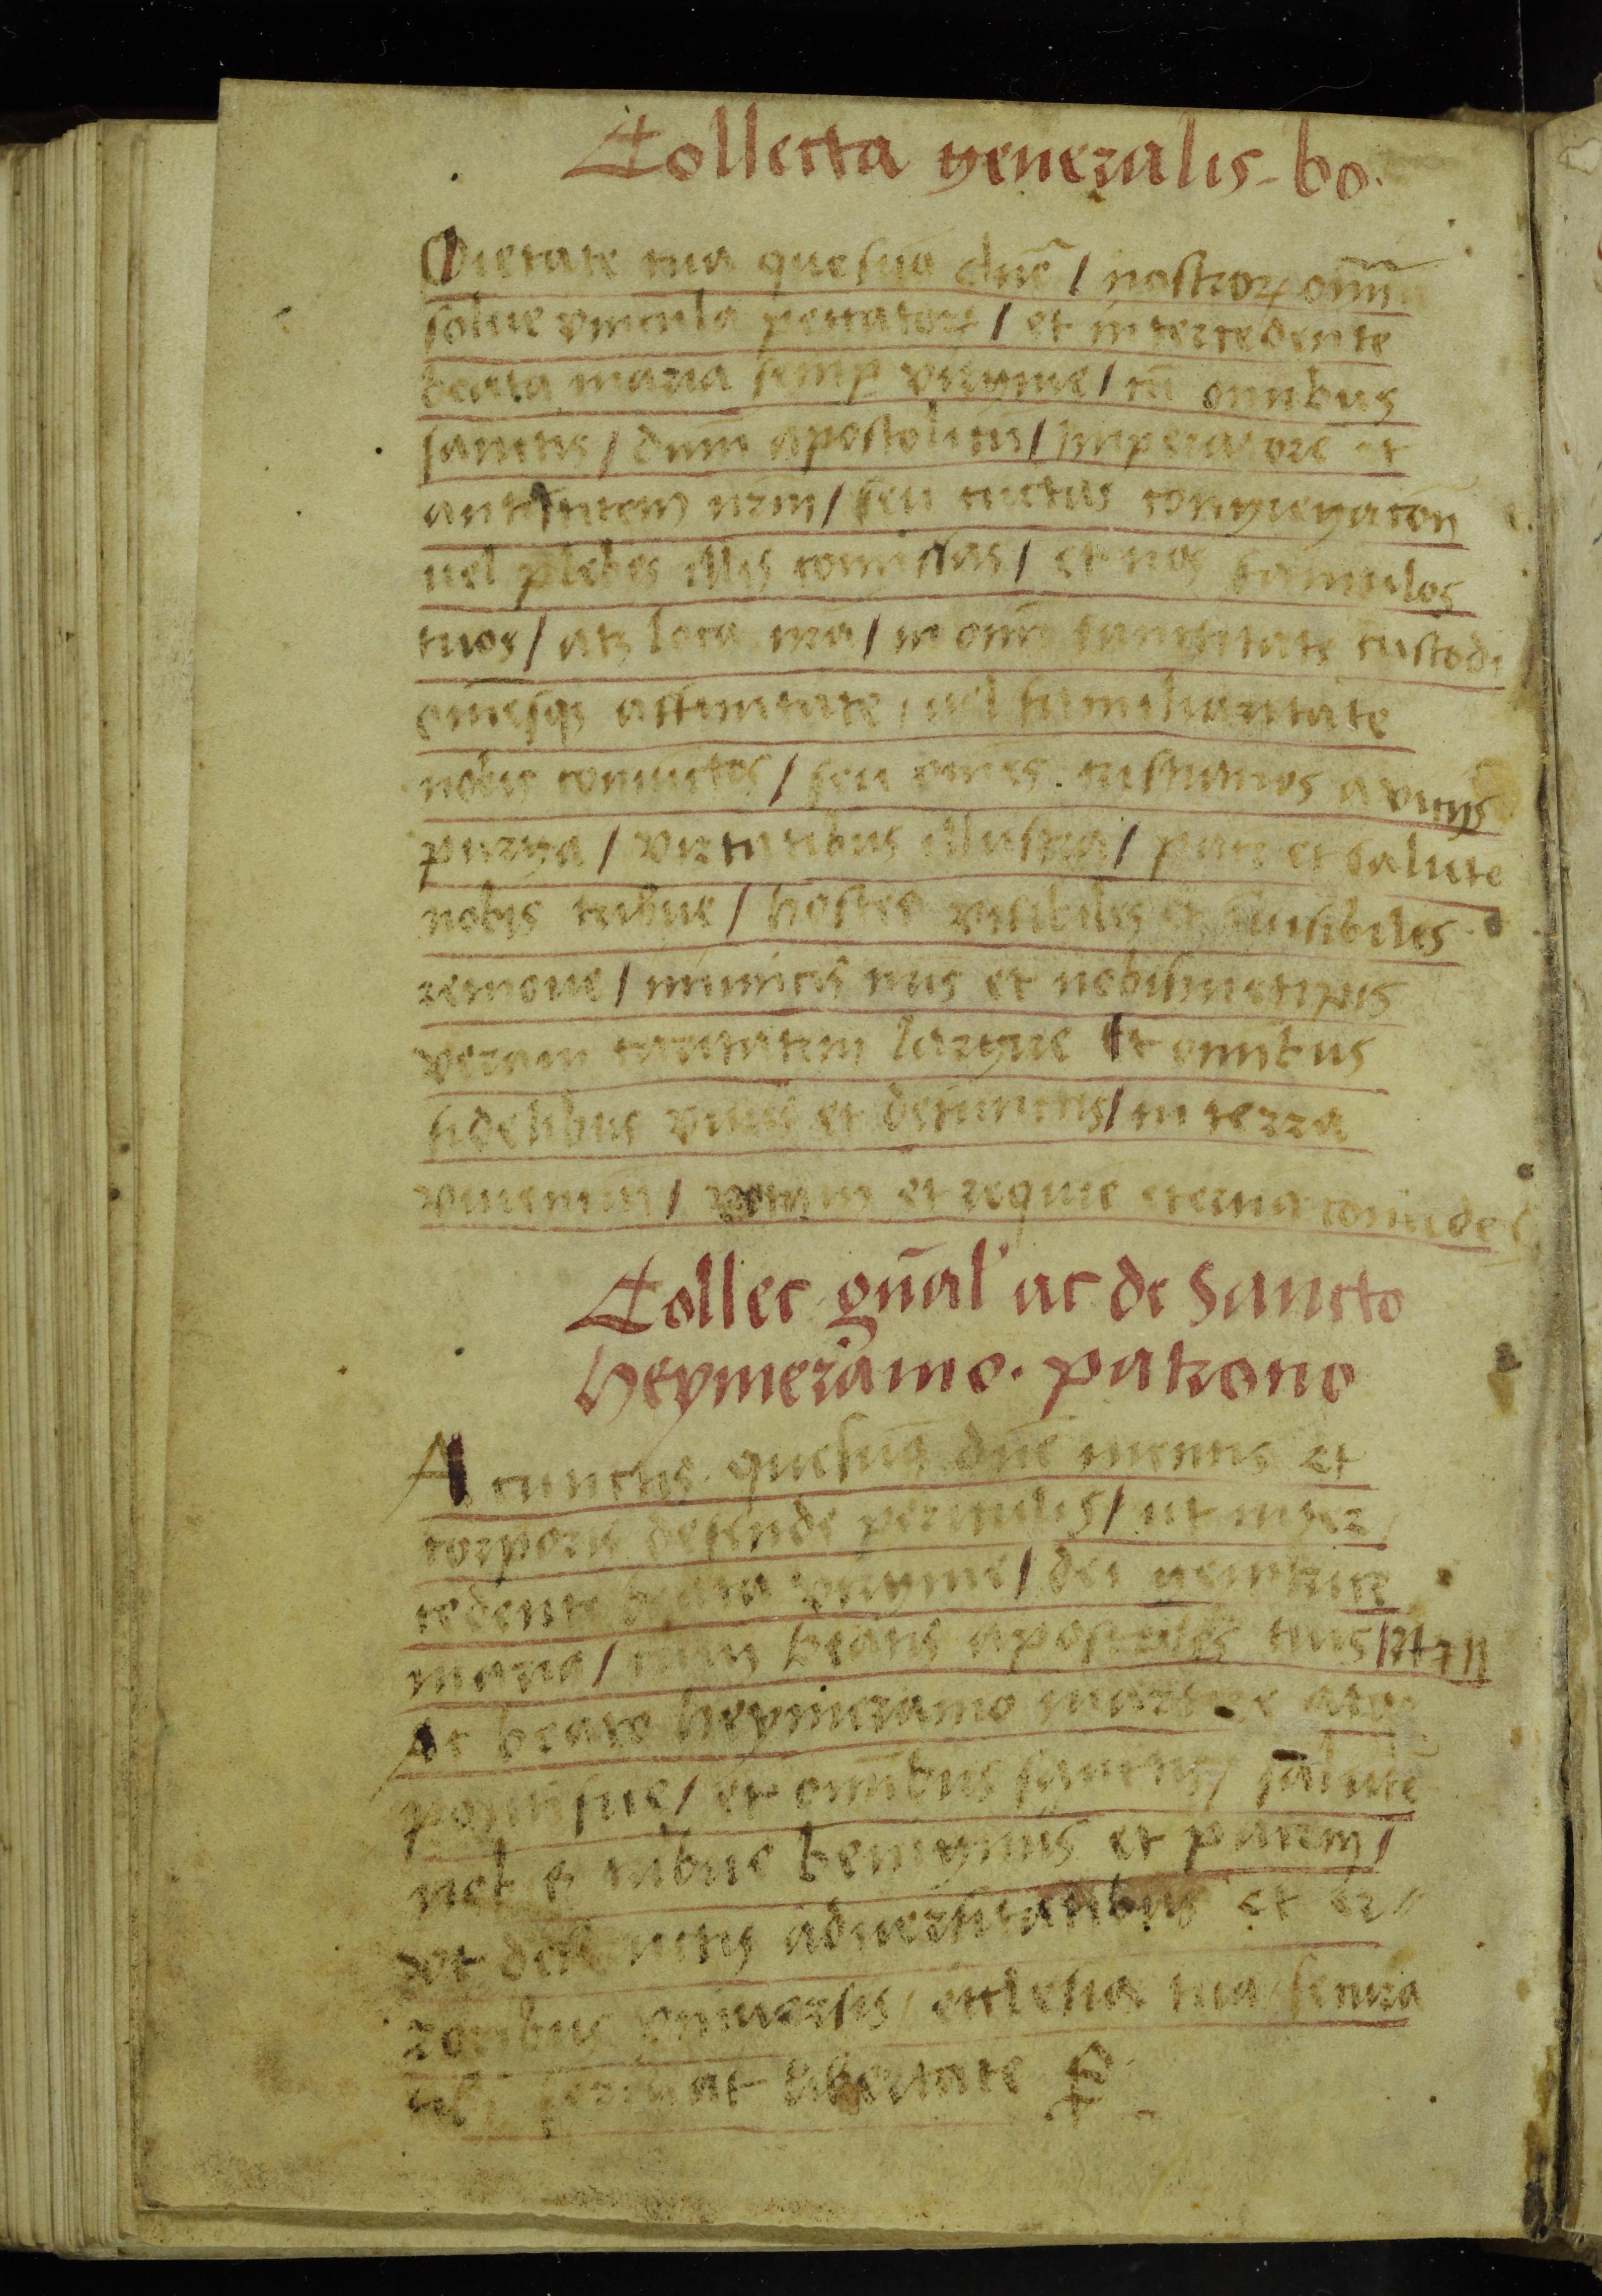 Collecta generalis. bo.
Pietate tua quesum̄ dn̄e / nostroꝝ om̄iu
solue vincula peccatoꝝ / et intercedente
beata maria semp virgine / cū om̄ibus
sanctis / dnm̄ apostolicū / Imperatore et
antistitem nrm̄ / seu cūctas congregacōn
uel plebes illis comissas / et nos famulos
tuos / atꝫ loca nr̄a / in omī sanctitate custodi
omēsqꝫ affinitate / uel familiaritate
nobis coniūctos / seu omēs cristianos a vitijs
purga / virtutibus illustra / pacē et salutē
nobis tribue / hostes visibiles et Inuisibiles
remoue / inimicis nr̄is et nobis
veram caritatem largire Et omībus
fidelibus viuis et defunctis / in terra
viuenciū / vitam et requiē eternā concede
Collec gn̄al' ac de Sancto
Heymeramo. patrono
A cunctis quesum̄ dn̄e mentis et
corporis defende periculis / ut inter
cedente beata virgine / dei genitrice
maria / cum beatis apostolis tuis /
Ac beato heymeramo martire atqꝫ
pontifice / et omībus sanctis / salutē
nobis tribue benignus et pacem /
vt destructis aduersitatibus et er//
roribus vniuersis / ecclesia tua secura
tibi seruiat libertate P